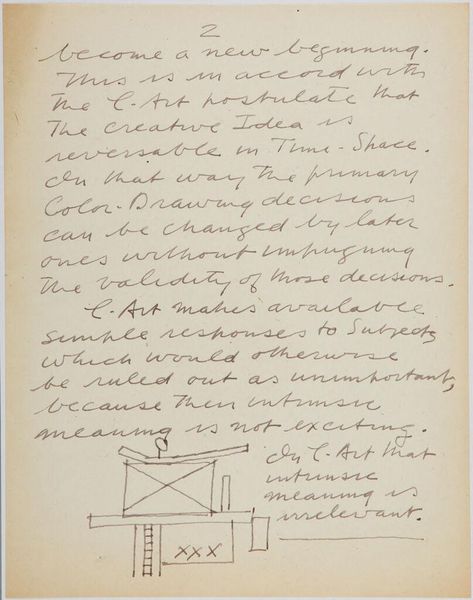 2
become a new beginning.
This is in accord with
the C-Art postulate that
The creative Idea is
reversable in Time-Space.
In that way the primary
Color-Drawing decisions
can be changed by later
ones without impugning
the validity of those decisions.
C-Art makes available
simple responses to Subjects
which would otherwise
be ruled out as unimportant,
because their intrinsic
meaning is not exciting.
In C-Art that
intrinsic
meaning is
irrelevant.
XXX